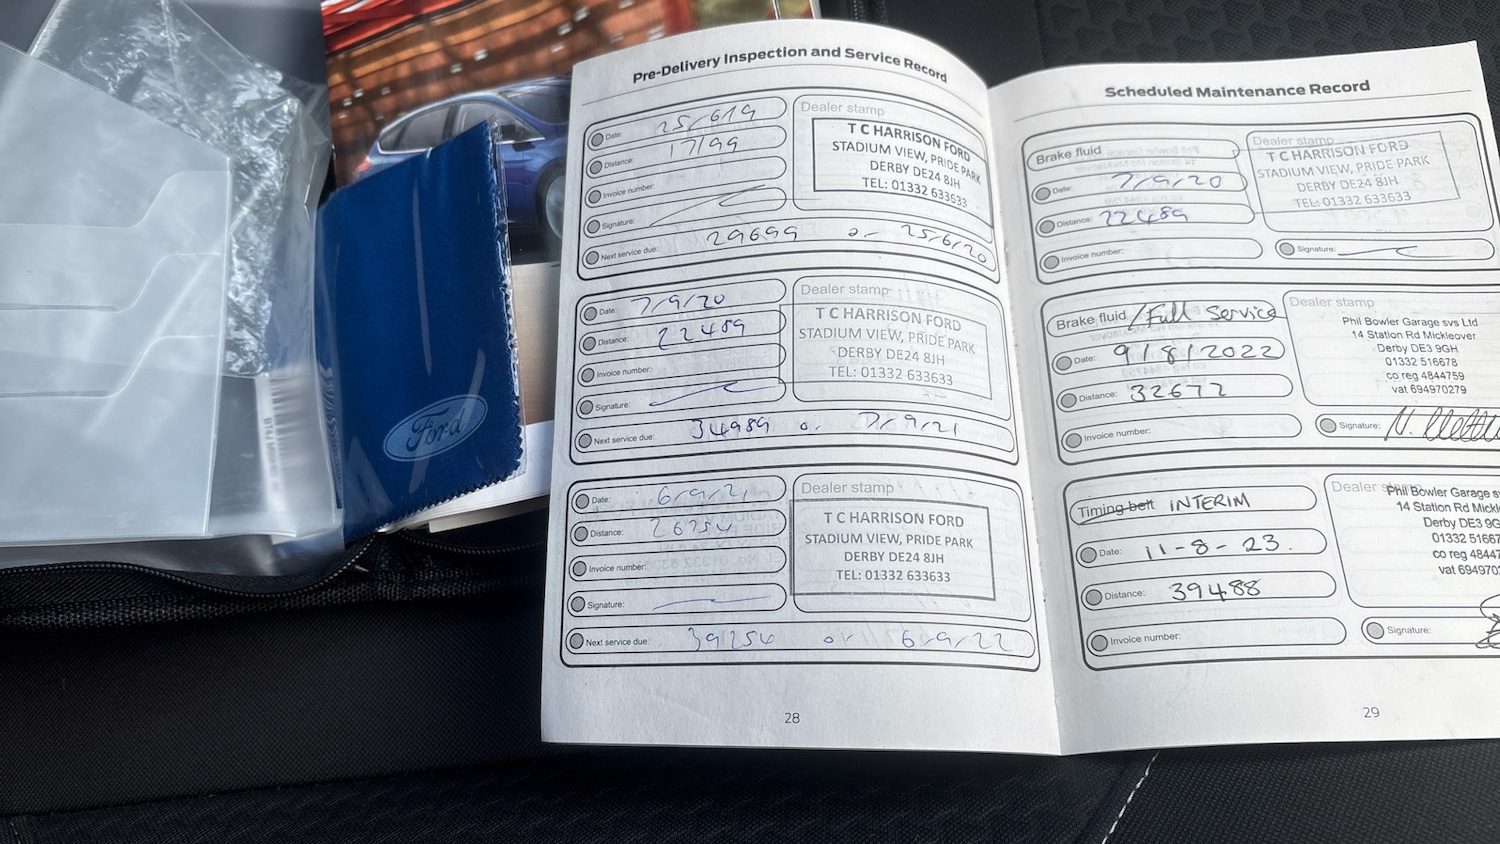 Pre-Delivery Inspection and Service Record
Date: 25/6/19
Distance: 17199
Invoice number:
Signature:
Next service due: 29699 or 25/6/20
Dealer stamp
T C HARRISON FORD
STADIUM VIEW, PRIDE PARK
DERBY DE24 8JH
TEL: 01332 633633
Date: 7/9/20
Distance: 22489
Invoice number:
Signature:
Next service due: 34989 or 7/9/21
Dealer stamp
T C HARRISON FORD
STADIUM VIEW, PRIDE PARK
DERBY DE24 8JH
TEL: 01332 633633
Date: 6/9/21
Distance: 26754
Invoice number:
Signature:
Next service due: 39254 or 6/9/22
Dealer stamp
T C HARRISON FORD
STADIUM VIEW, PRIDE PARK
DERBY DE24 8JH
TEL: 01332 633633
28
Scheduled Maintenance Record
Brake fluid
Date: 7/9/20
Distance: 22489
Invoice number:
Dealer stamp
T C HARRISON FORD
STADIUM VIEW, PRIDE PARK
DERBY DE24 8JH
TEL: 01332 633633
Signature:
Brake fluid /Full Service
Date: 9/8/2022
Distance: 32672
Invoice number:
Dealer stamp
Phil Bowler Garage svs Ltd
14 Station Rd Mickleover
Derby DE3 9GH
01332 516678
co reg 4844759
vat 694970279
Signature:
Timing belt INTERIM
Date: 11-8-23.
Distance: 39488
Invoice number:
Dealer stamp
Phil Bowler Garage s
14 Station Rd Mickl
Derby DE3 9G
01332 5166
co reg 4844
vat 69497
Signature:
29
Ford